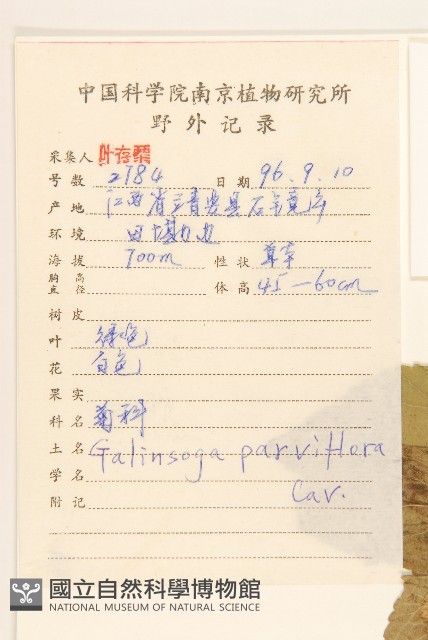 中国科学院南京植物研究所
野外记录
采集人 叶存粟
号数 2784 日期 96.9.10
产地 江西省 县石
环境 田
海拔 700m 性状 草本
胸高直径 体高 45—60cm
树皮
叶 绿色
花 白色
果实
科名 菊科
土名 Galinsoga parviflora
学名 Cav.
附记
國立自然科學博物館
NATIONAL MUSEUM OF NATURAL SCIENCE